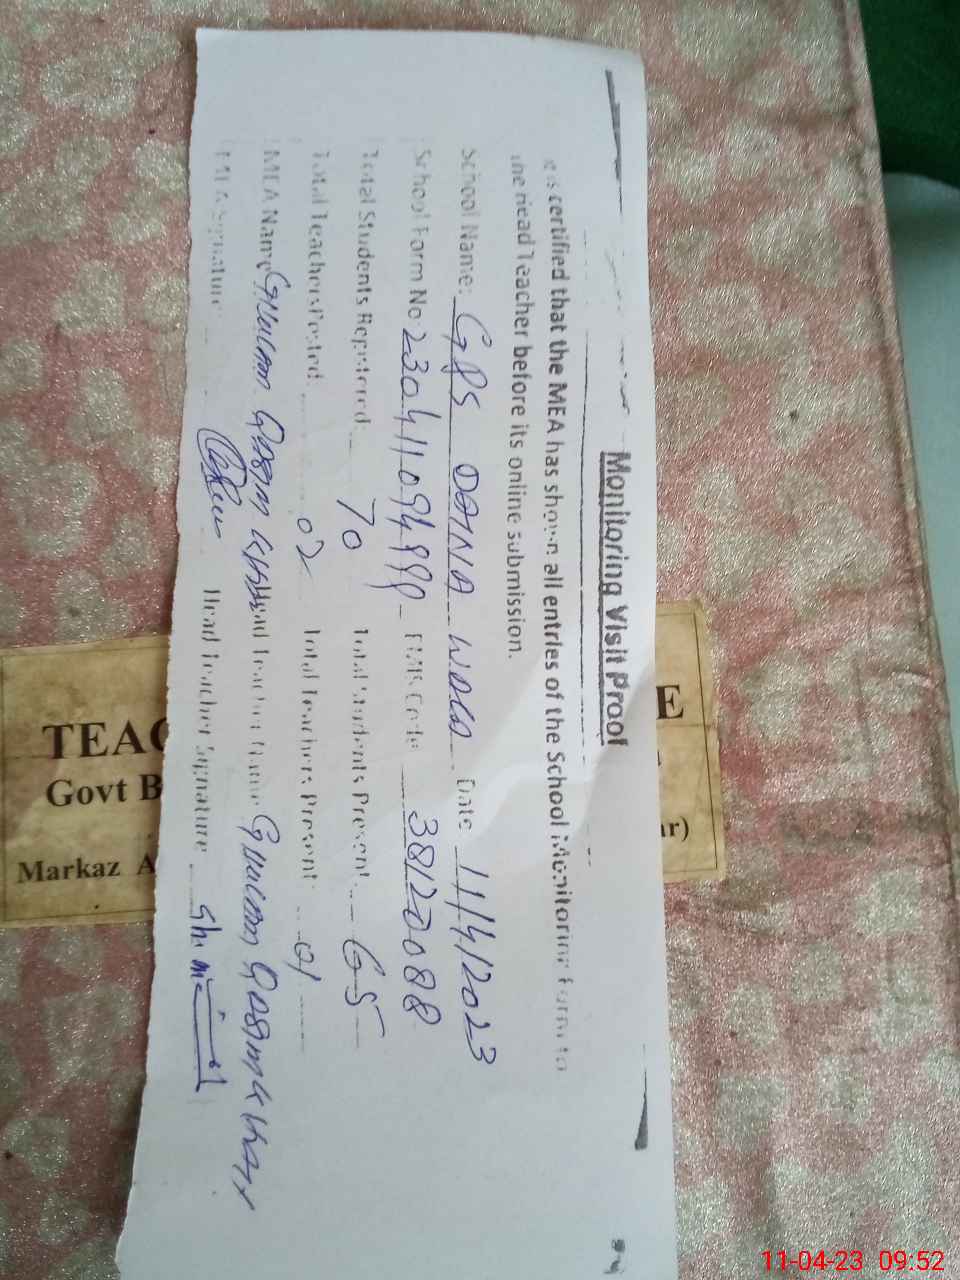 Monitoring Visit Proof
It is certified that the MEA has shown all entries of the School Monitoring Form to
the Head Teacher before its online submission.
School Name: GPS DAHNA Date 11/4/2023
School Form No EMIS Code 38120088
Total Students Registered 70 Total Students Present 65
Total Teachers Posted: 02 Total Teachers Present: 01
MEA Name Ghulam Qasim Head Teacher Name Ghulam Qasim
MEA Signature Head Teacher Signature
TEAC
E
Govt B
ar)
Markaz A
11-04-23 09:52